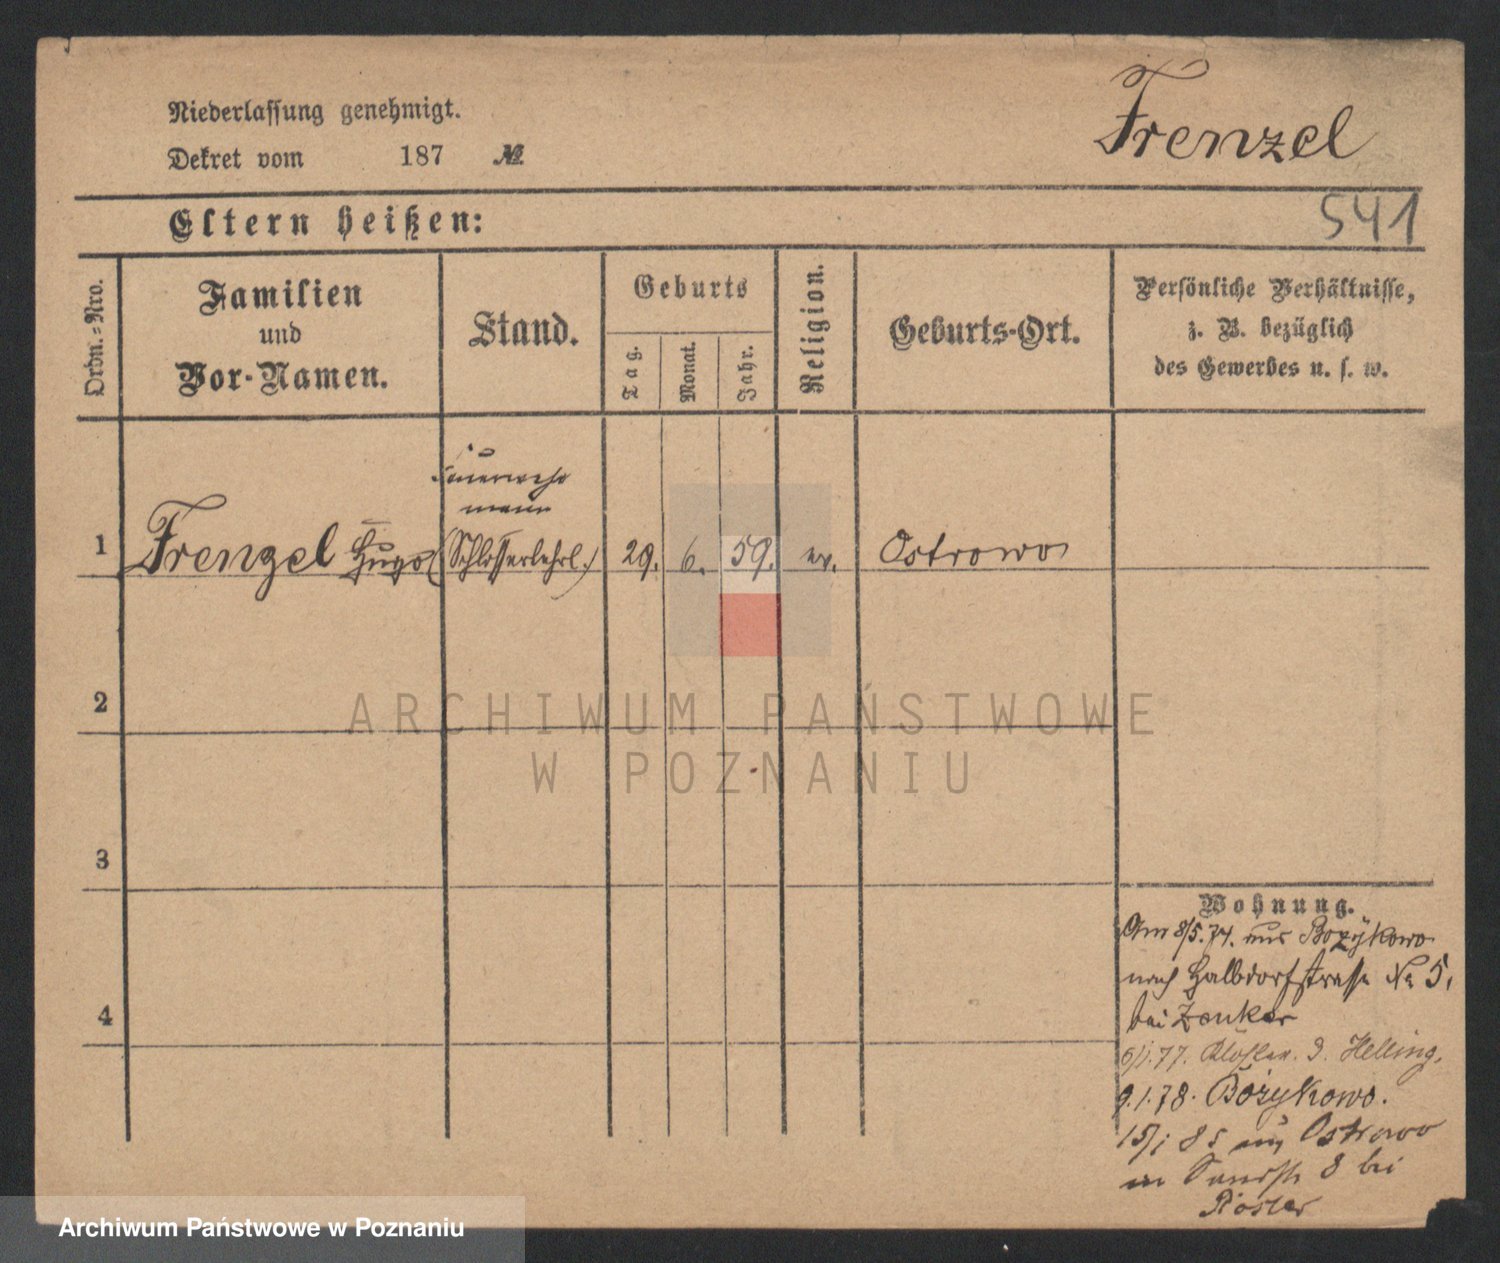 Niederlassung genehmigt.
Dekret vom 187 №
Frenzel
541
Eltern heißen:
Ordn.=Nro.
Familien
und
Vor-Namen.
Stand.
Geburts
Tag.
Monat.
Jahr.
Religion.
Geburts-Ort.
Persönliche Verhältnisse,
z. B. bezüglich
des Gewerbes u. s. w.
Feuerwehr
mann
1 Frenzel Hugo (Schlosserlehrl.) 29. 6. 59. ev. Ostrowo
2
ARCHIWUM PAŃSTWOWE
W POZNANIU
3
Wohnung.
Am 8/5. 74. aus Bozÿkowo
nach Halbdorfstrasse No 5,
bei Zenker
77. 3. Helling,
9.1.78. Bozykowo.
15/1 85 aus Ostrowo
in Sandstr 8 bei
4
Archiwum Państwowe w Poznaniu